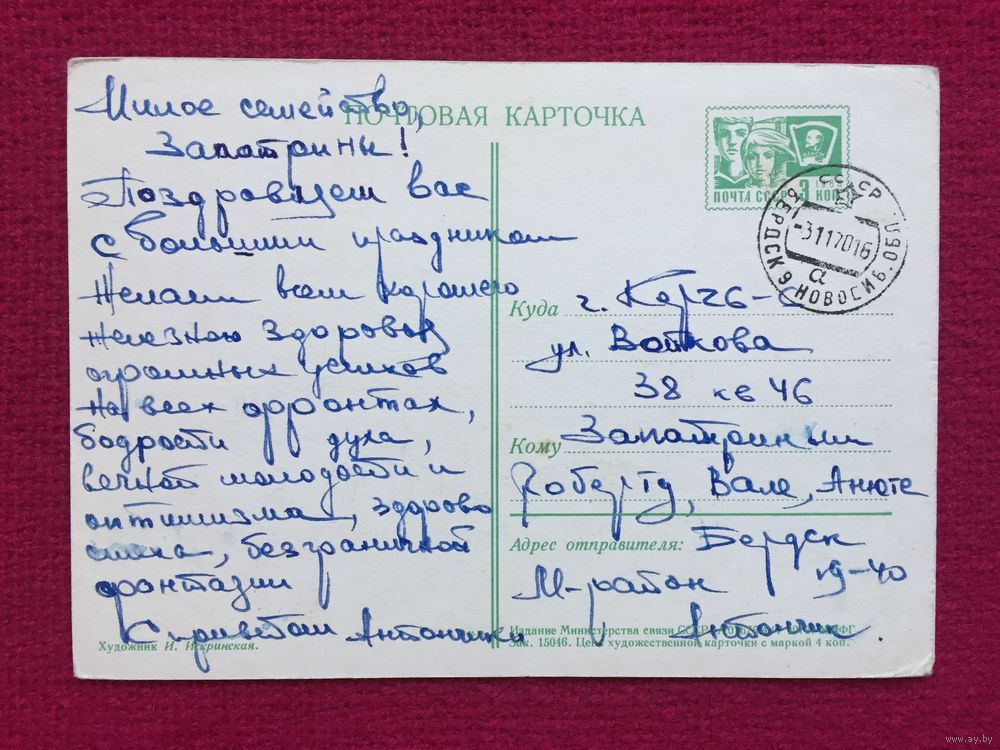 ПОЧТОВАЯ КАРТОЧКА
Милое семейство,
Запатрины!
Поздравляем вас
с большим праздником
Желаем вам хорошего
железного здоровья
огромных успехов
на всех фронтах,
бодрости духа,
вечной молодости и
оптимизма, здорово
смеха, безграничной
фантазии
С приветом Антончики
Художник И. Искринская.
ПОЧТА СССР 3 КОП
СССР
БЕРДСК 9 НОВОСИБ. ОБЛ.
-3117016
а
Куда г. Керчь-
ул. Войкова
38 кв 46
Кому Запатриным
Роберту, Вале, Анюте
Адрес отправителя: Бердск
М-район 19-40
Антончик.
Издание Министерства связи СССР
Зак. 15046. Цена художественной карточки с маркой 4 коп.
www.ay.by